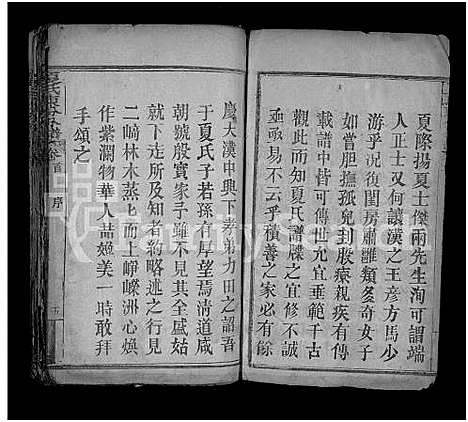 夏際揚夏士傑兩先生洵可謂端
人正士又何讓漢之王彥方馬少
游乎況復閨房肅雝類多奇女子
如嘗胆撫孤兒刲股療親疾有傳
於譜中皆可傳世允宜載範千古
觀此而知夏氏譜牒之修不誠
亟亟易不云乎積善之家必有餘
慶大漢中興下孝弟力田之詔吾
于夏氏子若孫有厚望焉清道咸
朝號殷實家予雖不見其全届姑
就下迄所及知者約略述之行見
二崎林木蒸上而上崢嶸洲心煥
作紫瀾物華人喆媲美一時敢拜
手頌之
卷首
序
五